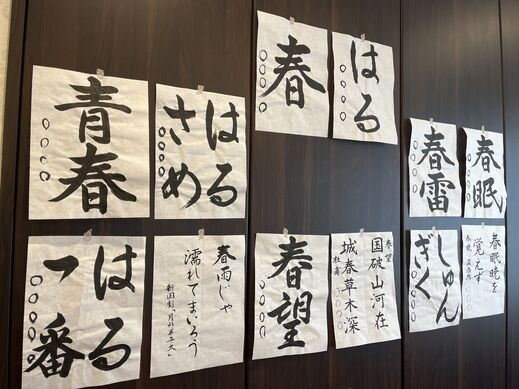 春
はる
青春
はる
さめ
春雷
春眠
春眠暁を
覚えず
はる
一番
春雨じゃ
濡れてまいろう
新国劇「月形半平太」
春望
春望
国破山河在
城春草木深
杜甫
しゅん
ぎく